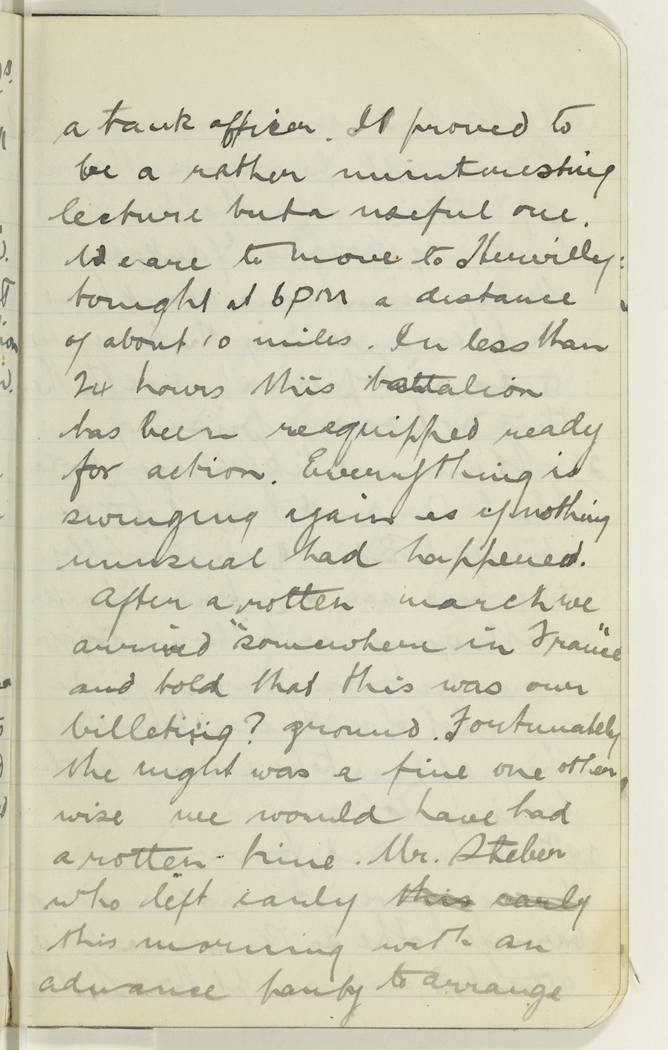 a tank officer. It proved to
be a rather uninteresting
lecture but a useful one.
We are to move to
tonight at 6 PM a distance
of about 10 miles. In less than
24 hours this battalion
has been reequipped ready
for action. Everything is
swinging again as if nothing
unusual had happened.
After a rotten march we
arrived "somewhere in France"
and told that this was our
billeting? ground. Fortunately
the night was a fine one other,
wise we would have had
a rotten time. Mr. Steber
who left early this early
this morning with an
advance party to arrange